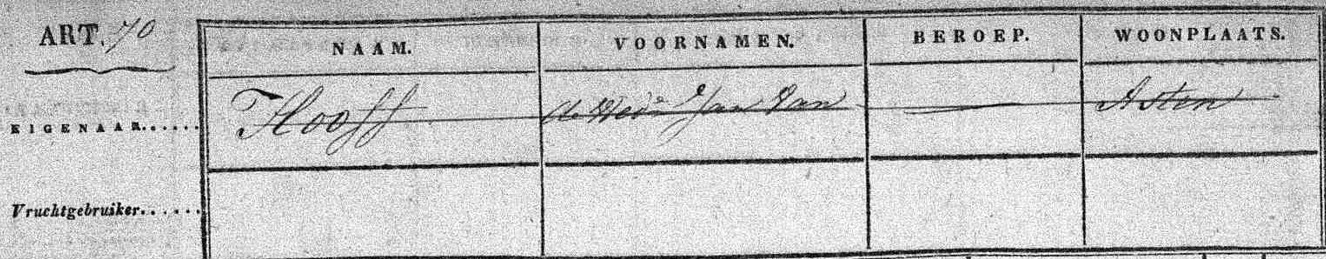 ART. 70
NAAM. VOORNAMEN. BEROEP. WOONPLAATS.
EIGENAAR...... T Hooff de Wede Jan Van — Asten
Vruchtgebruiker......